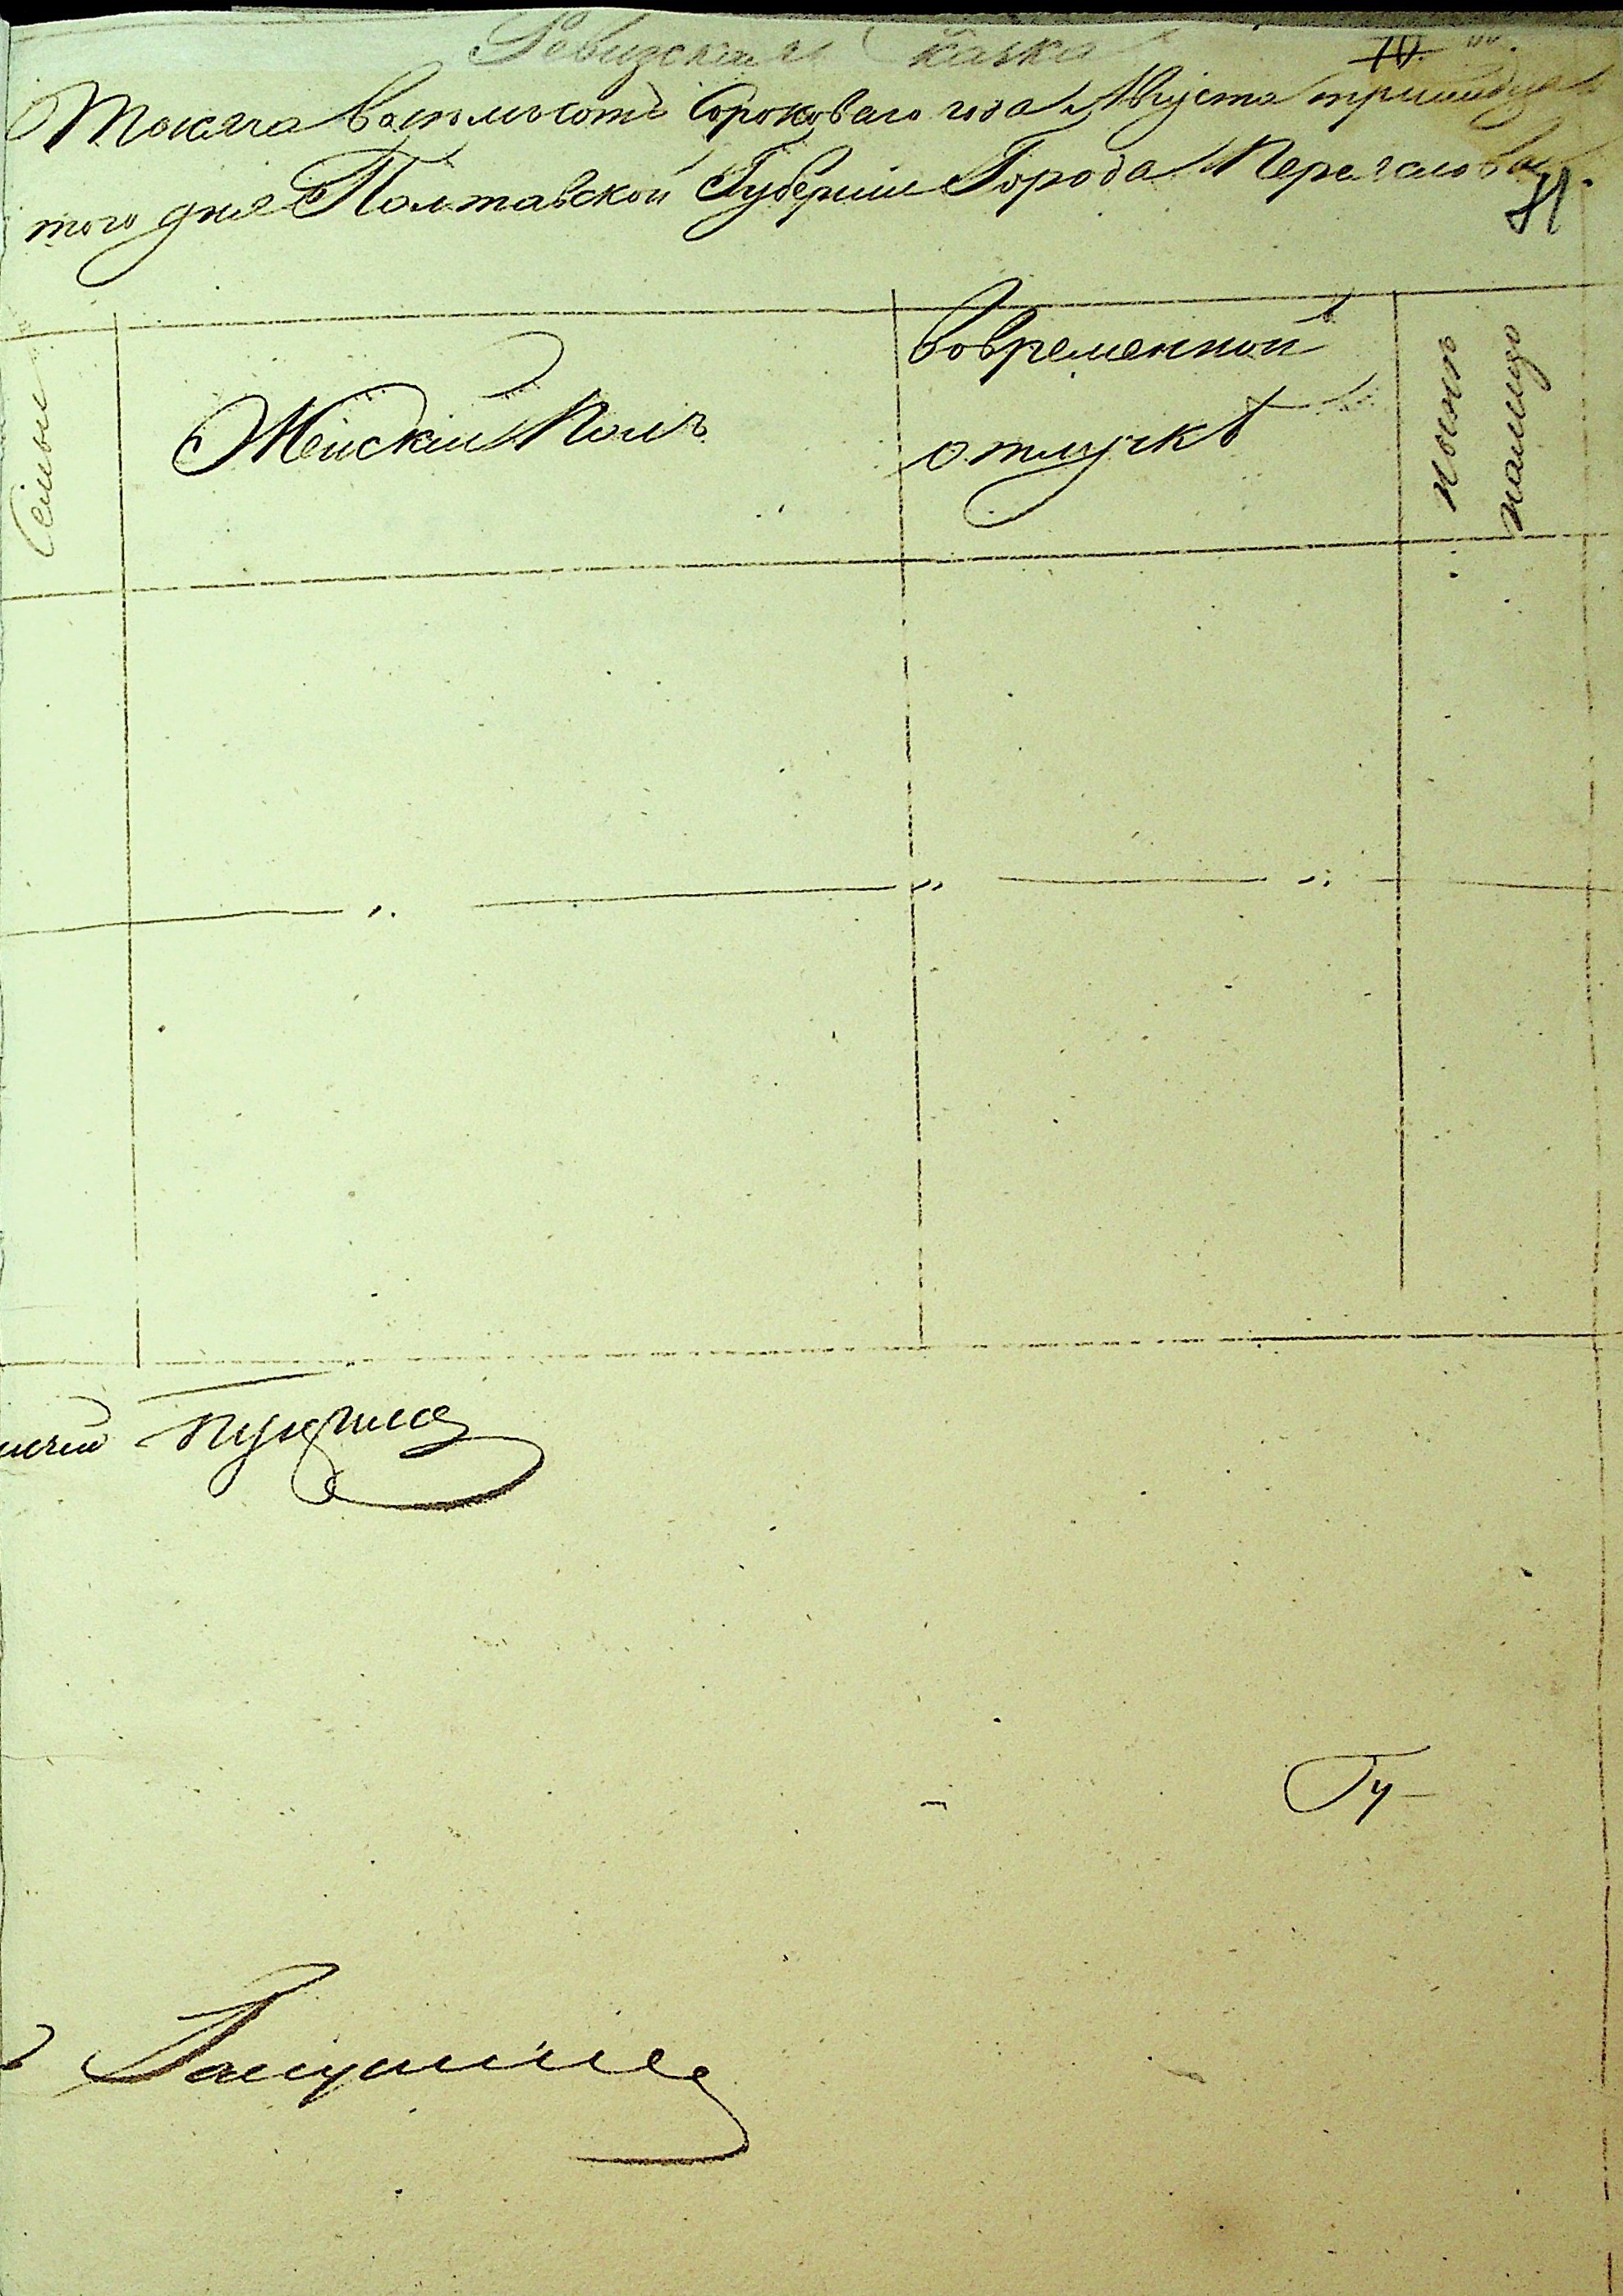 Ревизская Сказка
70.
Тысяча восемьсотъ Сороковаго года Августа тринадца
того дня Полтавской Губерніи Города Переяслова
71.
Семьи
Женскій Полъ
вовременной
отлучкѣ
ныне
налицо
Гу-